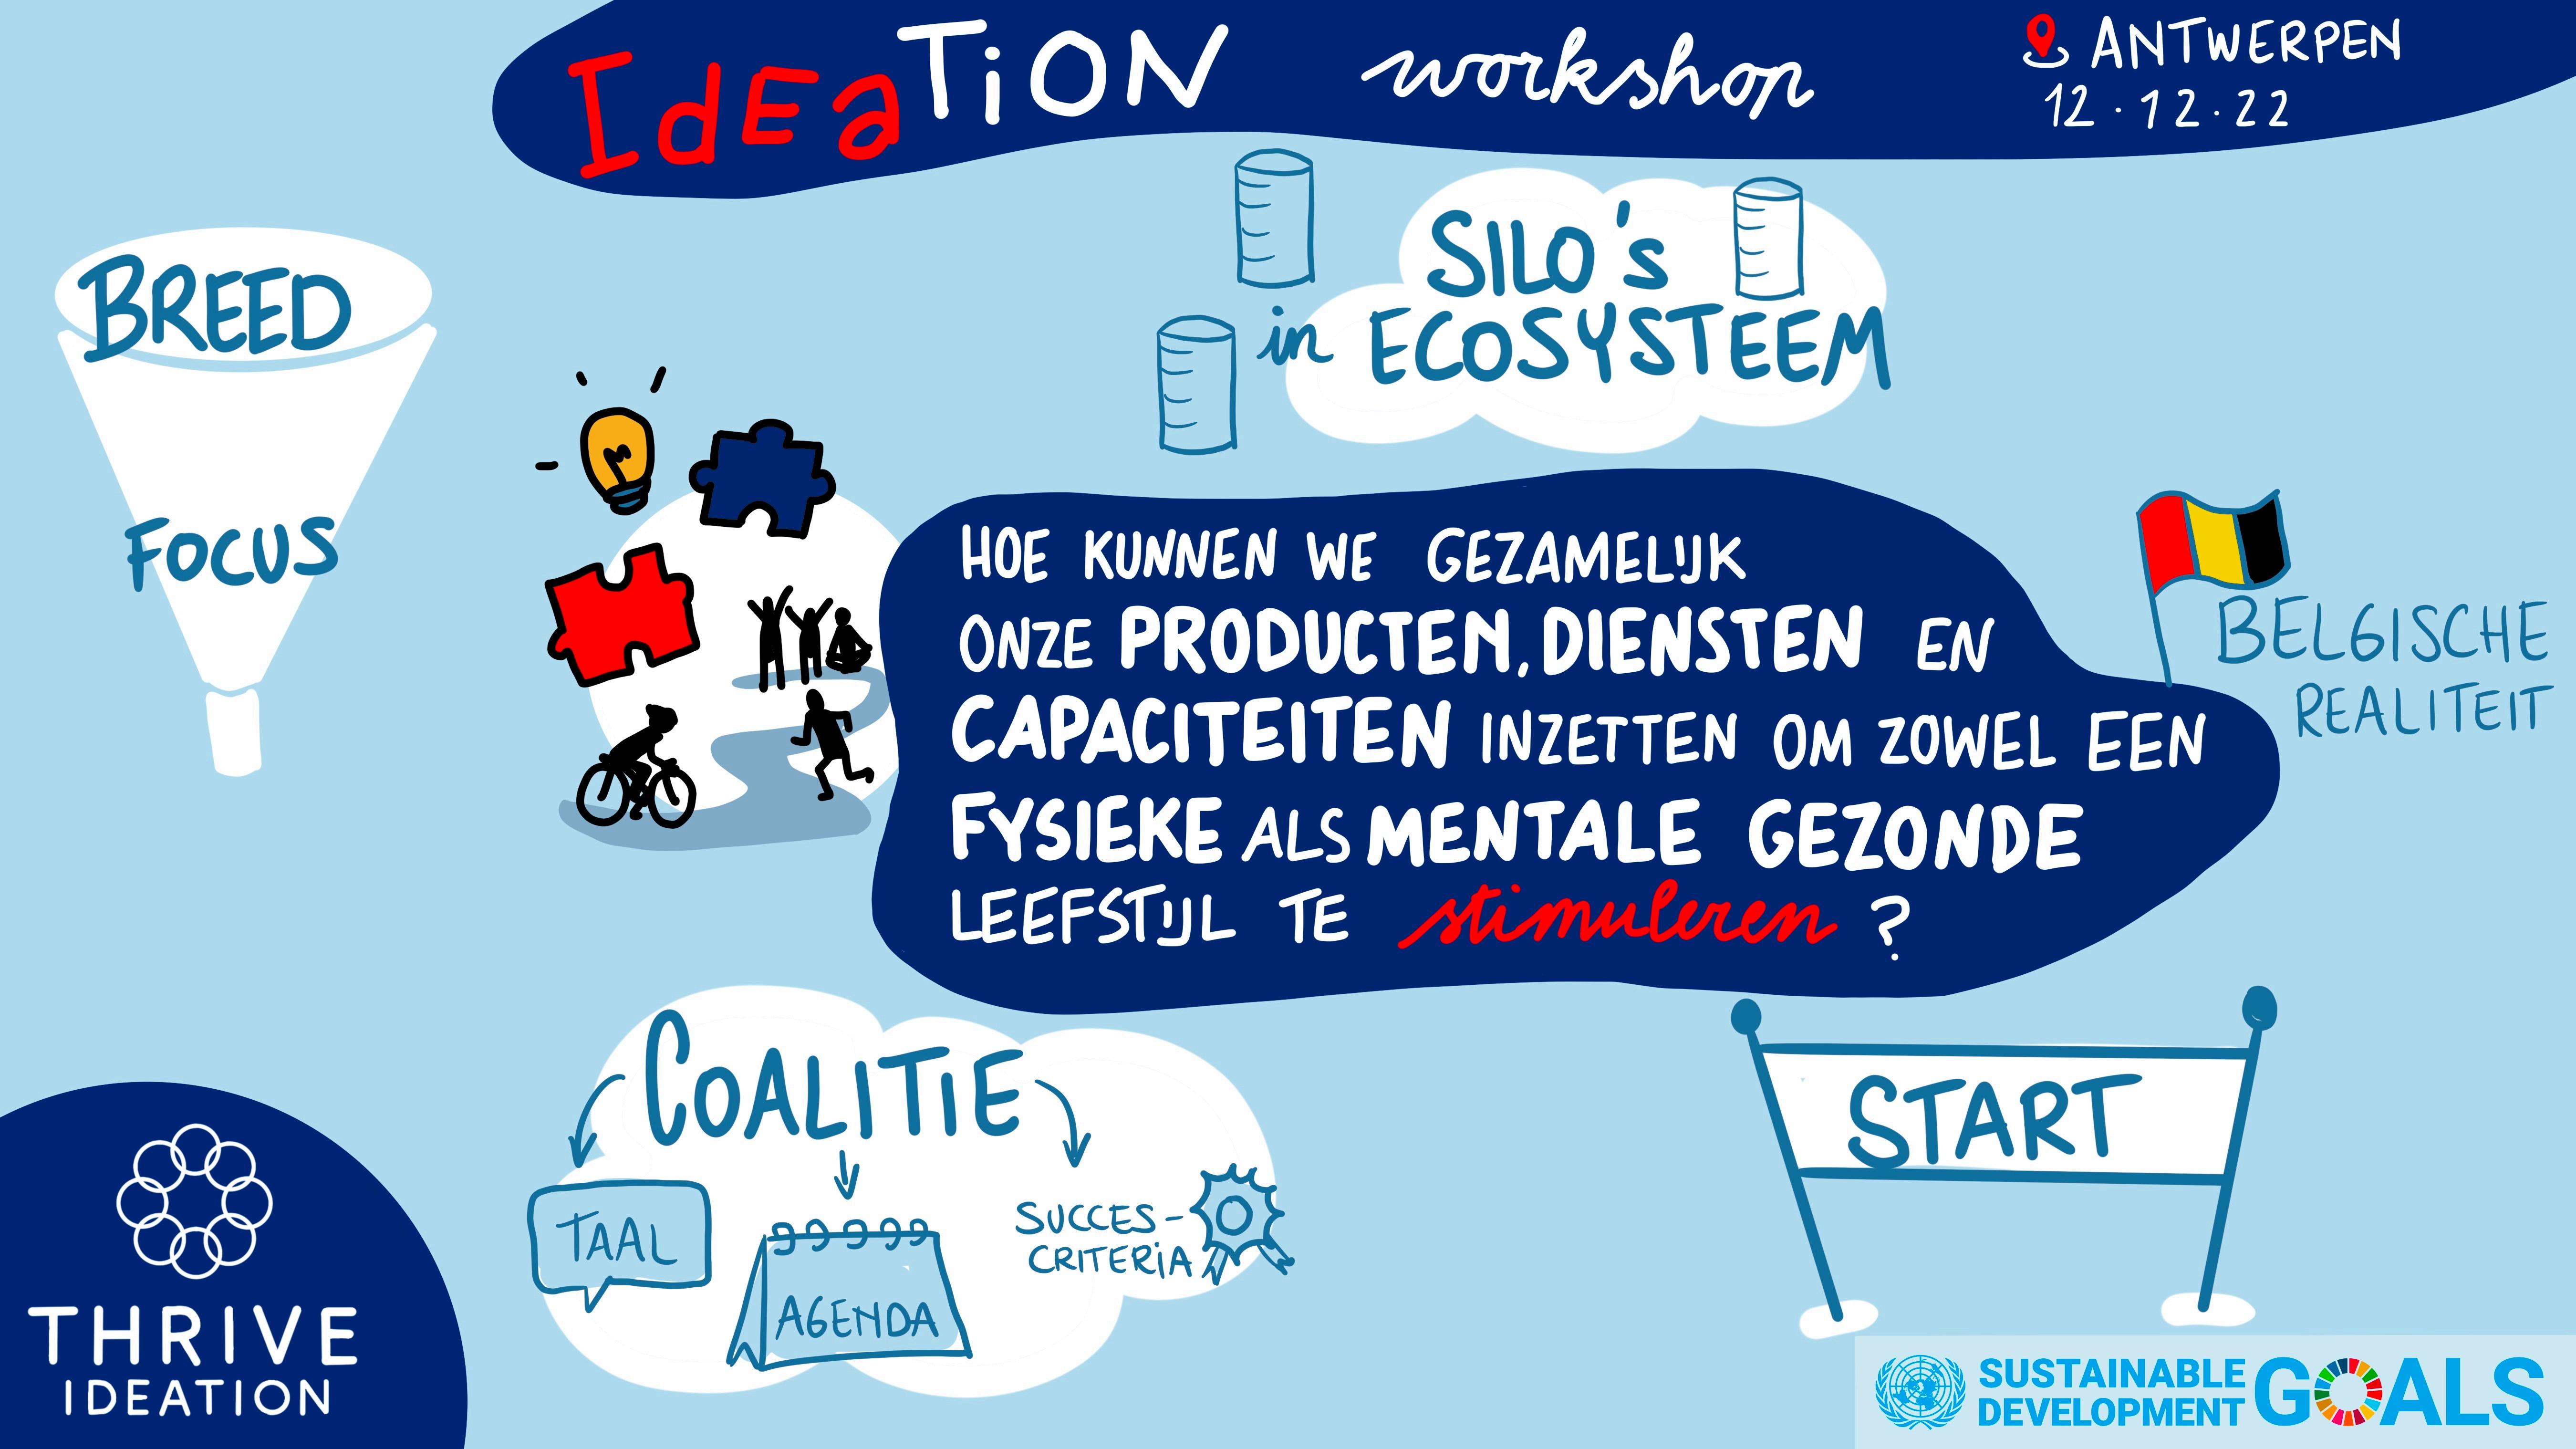 IdEaTiON workshop
ANTWERPEN
12.12.22
BREED
FOCUS
SILO's
in ECOSYSTEEM
HOE KUNNEN WE GEZAMELIJK
ONZE PRODUCTEN, DIENSTEN EN
CAPACITEITEN INZETTEN OM ZOWEL EEN
FYSIEKE ALS MENTALE GEZONDE
LEEFSTIJL TE stimuleren ?
BELGISCHE
REALITEIT
COALITIE
TAAL
AGENDA
SUCCES-
CRITERIA
START
THRIVE
IDEATION
SUSTAINABLE
DEVELOPMENT
GOALS